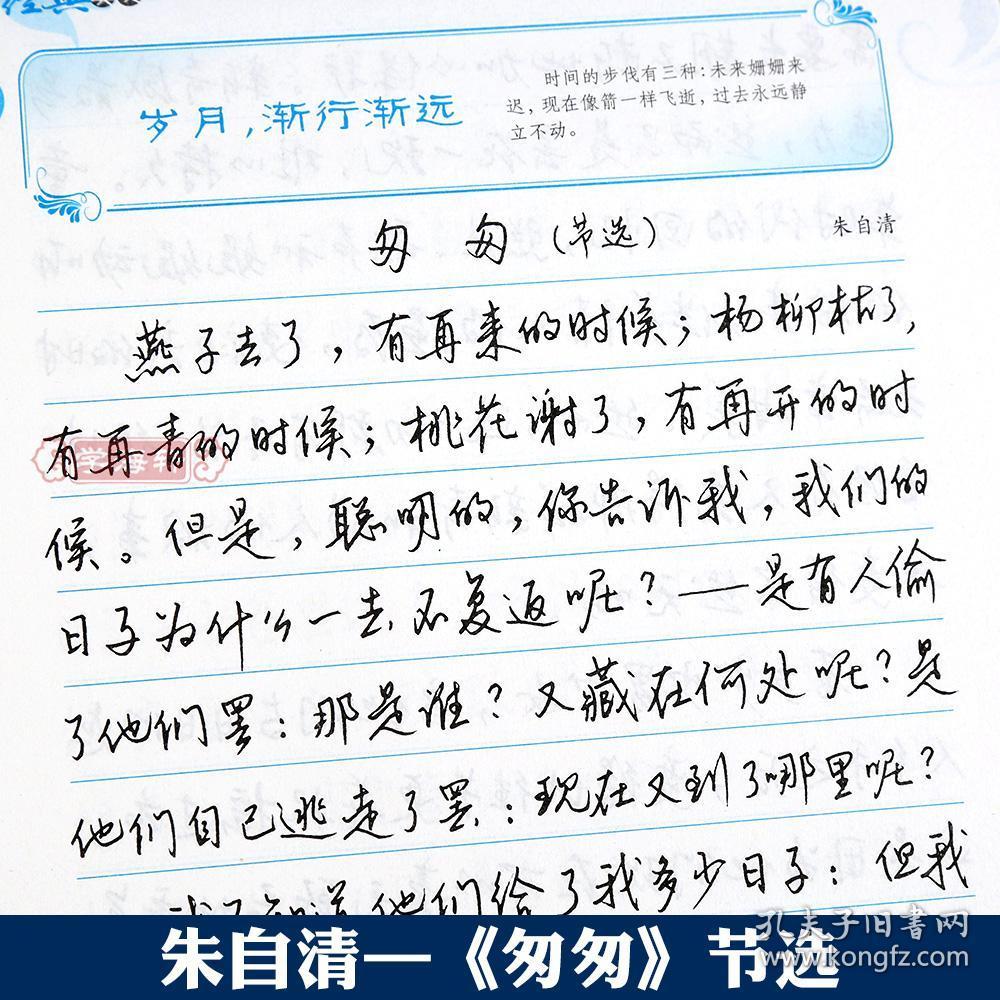 经典
岁月，渐行渐远
时间的步伐有三种：未来姗姗来
迟，现在像箭一样飞逝，过去永远静
立不动。
匆 匆（节选）
朱自清
燕子去了，有再来的时候；杨柳枯了，
有再青的时候；桃花谢了，有再开的时
候。但是，聪明的，你告诉我，我们的
日子为什么一去不复返呢？—是有人偷
了他们罢：那是谁？又藏在何处呢？是
他们自己逃走了罢：现在又到了哪里呢？
我不知道他们给了我多少日子：但我
朱自清—《匆匆》节选
孔夫子旧书网
www.kongfz.com